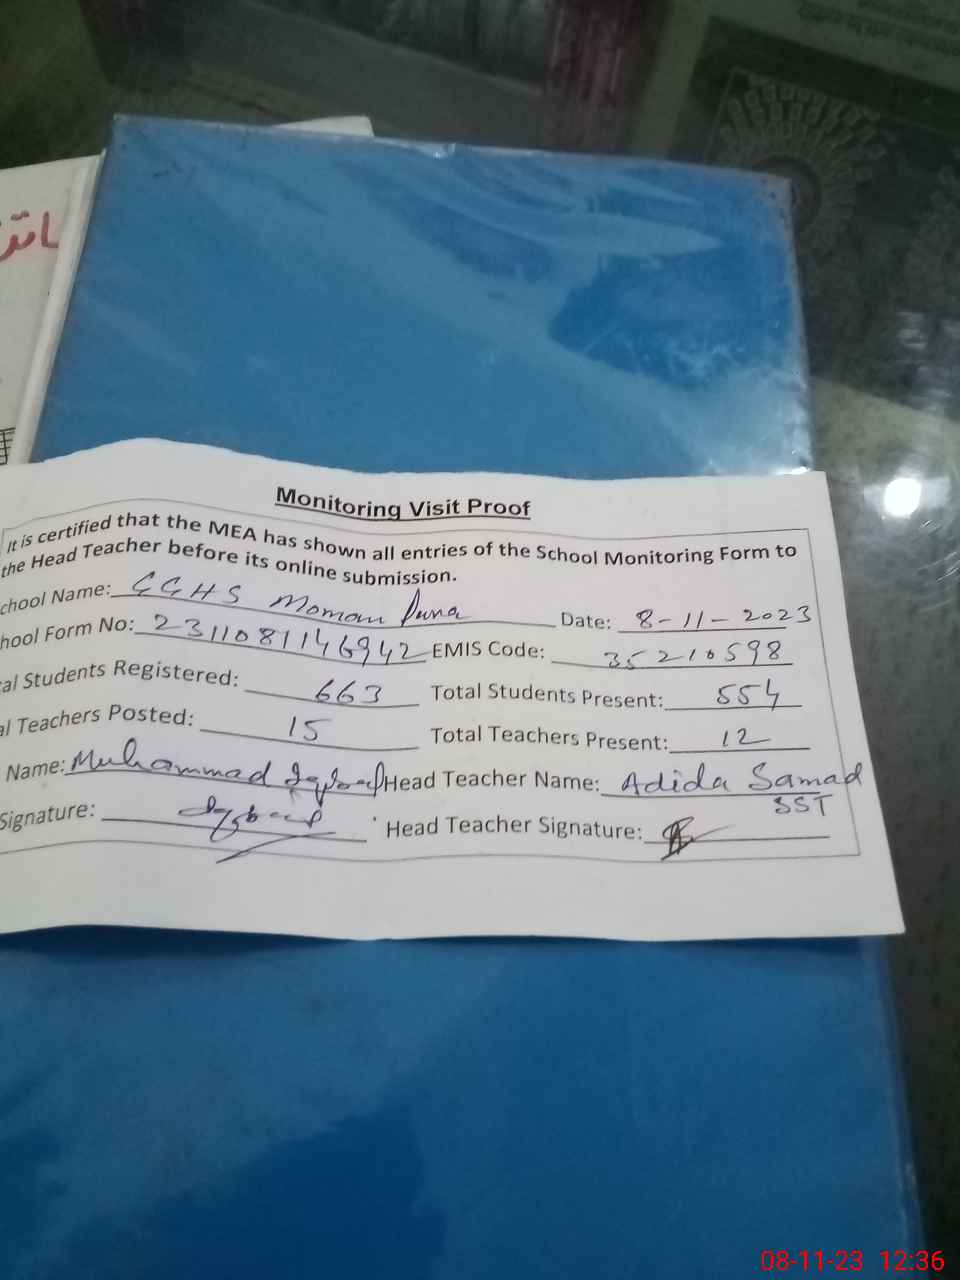 Monitoring Visit Proof
It is certified that the MEA has shown all entries of the School Monitoring Form to
the Head Teacher before its online submission.
chool Name: GGHS Moman Pura Date: 8-11-2023
hool Form No: 2311081146942 EMIS Code: 35210598
al Students Registered: 663 Total Students Present: 554
al Teachers Posted: 15 Total Teachers Present: 12
Name: Muhammad Iqbal Head Teacher Name: Adida Samad
SST
Signature: Head Teacher Signature:
08-11-23 12:36